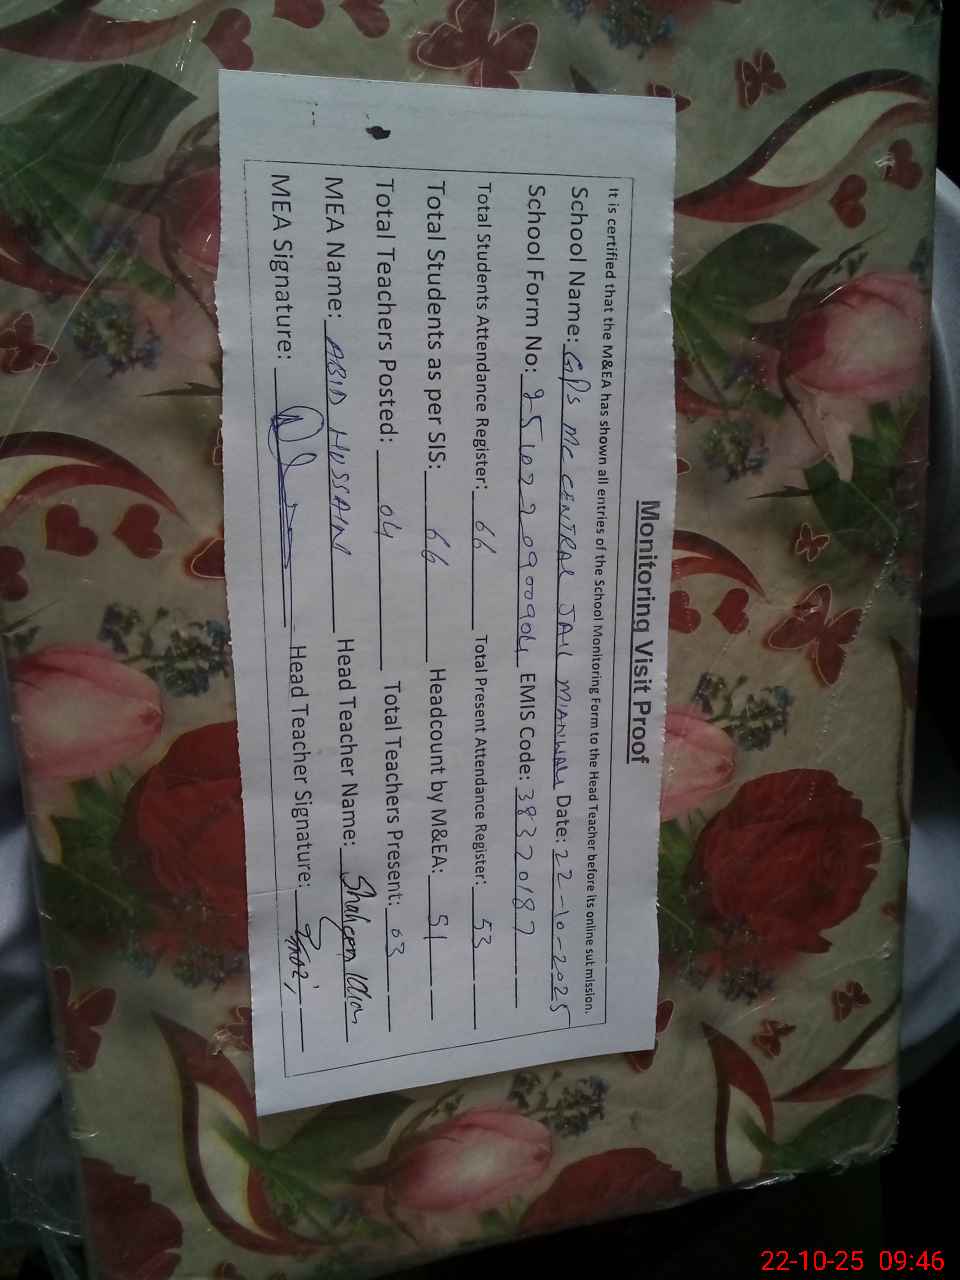 Monitoring Visit Proof
It is certified that the M&EA has shown all entries of the School Monitoring Form to the Head Teacher before its online submission.
School Name: GPS MC CENTRAL JAIL MIANWALI Date: 22-10-2025
School Form No: EMIS Code: 38320187
Total Students Attendance Register: 66 Total Present Attendance Register: 53
Total Students as per SIS: 66 Headcount by M&EA: 51
Total Teachers Posted: 04 Total Teachers Present: 03
MEA Name: ABID HUSSAIN Head Teacher Name: Shaheen
MEA Signature: Head Teacher Signature:
22-10-25 09:46